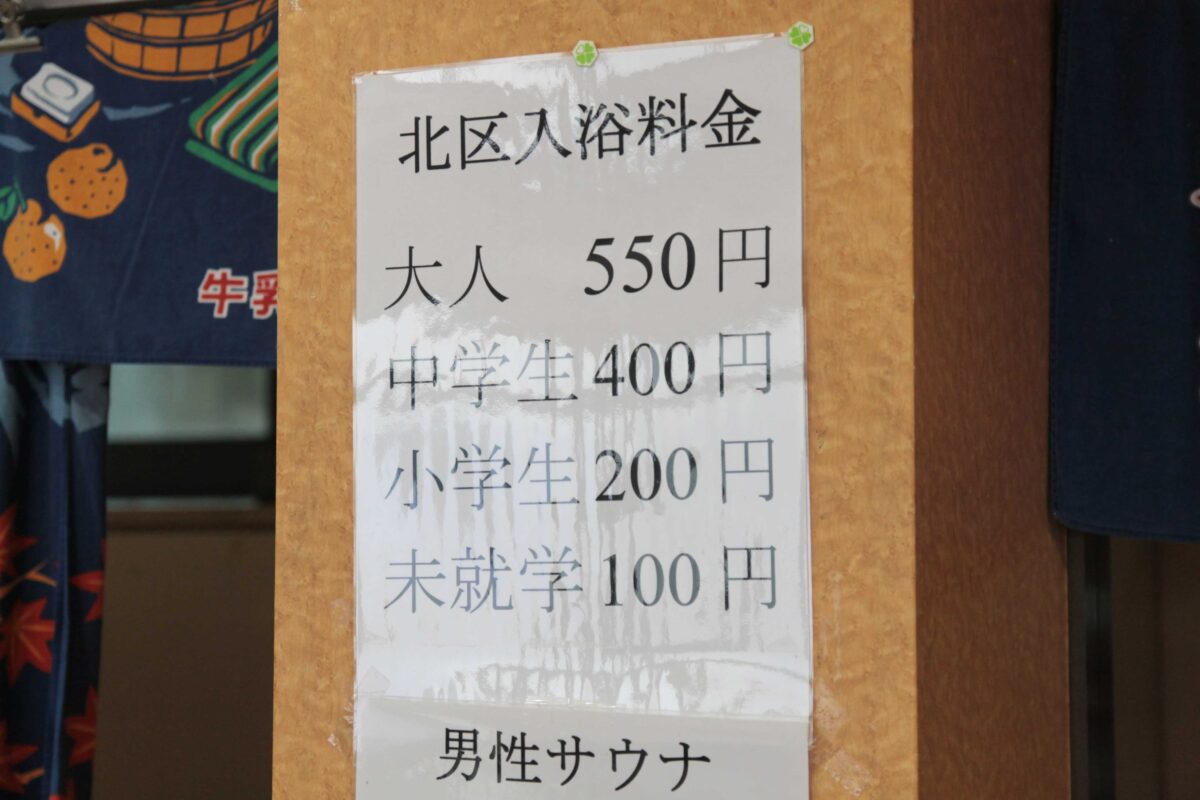 北区入浴料金
大人 550円
中学生 400円
小学生 200円
未就学 100円
男性サウナ
牛乳